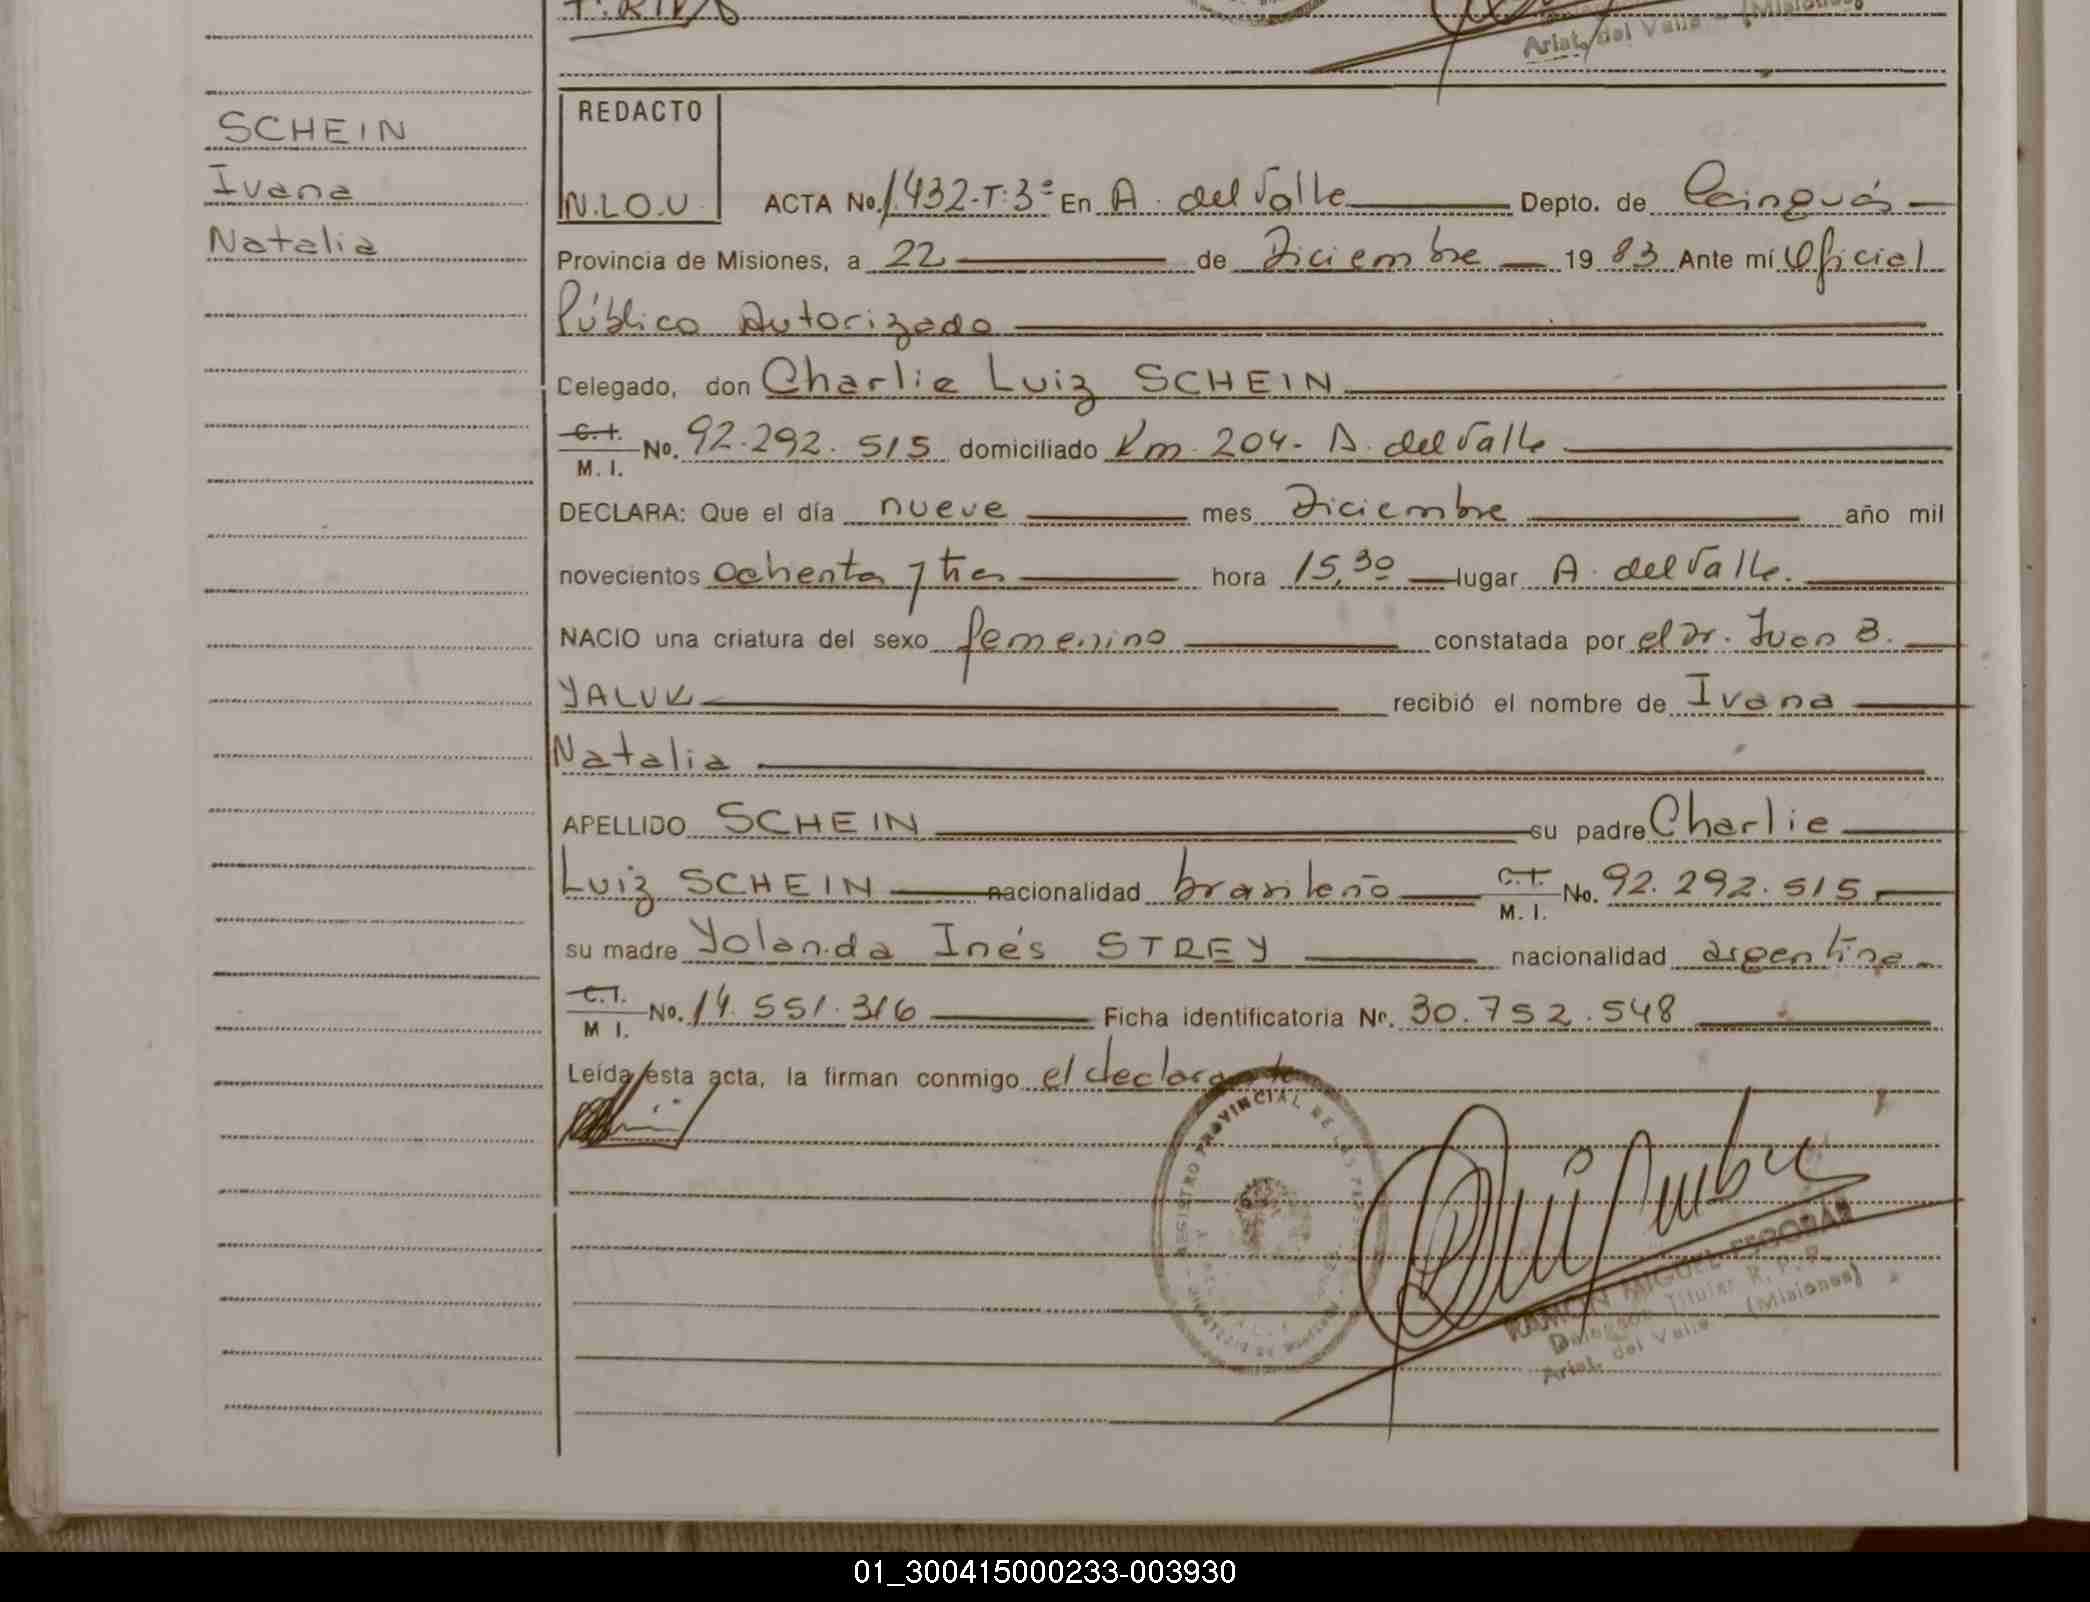 Arist. del Valle - (Misiones)
SCHEIN
Ivana
Natalia
REDACTO
N.L.O.U.
ACTA No. 1.432-T:3º En A. del Valle Depto. de Cainguás
Provincia de Misiones, a 22 de Diciembre 19 83 Ante mí Oficial
Público Autorizado
Celegado, don Charlie Luiz SCHEIN
C.I. M. I. No. 92.292.515 domiciliado Km 204- A. del Valle
DECLARA: Que el día nueve mes Diciembre año mil
novecientos ochenta y tres hora 15,30 lugar A. del Valle.
NACIO una criatura del sexo femenino constatada por el Dr. Juan B.
YALUK recibió el nombre de Ivana
Natalia
APELLIDO SCHEIN su padre Charlie
Luiz SCHEIN nacionalidad brasileño C.I. M. I. No. 92.292.515
su madre Yolanda Inés STREY nacionalidad argentina
C.I. M I. No. 14.551.316 Ficha identificatoria Nº. 30.752.548
Leída esta acta, la firman conmigo el declarante
REGISTRO PROVINCIAL DE LAS PERSONAS
RAMON MIGUEL ESCOBAR
Delegado Titular R. P. P.
Arist. del Valle - (Misiones)
01_300415000233-003930